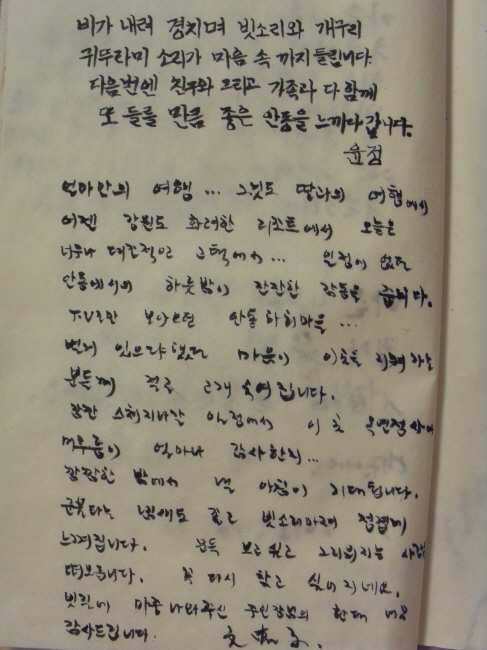 비가 내려 경치며 빗소리와 개구리
귀뚜라미 소리가 마음 속 까지 들립니다.
다음번엔 친구와 그리고 가족과 다 함께
또 들를 만큼 좋은 안동을 느끼다 갑니다.
윤정
엄마만의 여행 ... 그것도 딸과의 여행에서
어젠 강원도 화려한 리조트에서 오늘은
너무나 대조적인 고택에서... 일정에 없던
안동에서의 하룻밤이 잔잔한 감동을 줍니다.
TV로만 보아오던 안동 하회마을 ...
멀게 있으랴했던 마음이 이곳을 지켜 가는
분들께 절로 고개 숙여집니다.
잠깐 스쳐지나갈 일정에서 이 곳 옥연정사에
머무름이 얼마나 감사한지...
깜깜한 밤에서 낼 아침이 기대됩니다.
군불 타는 냄새도 좋고 빗소리마저 정겹게
느껴집니다. 문득 보고 싶고 그리워지는 사람
떠오릅니다. 꼭 다시 찾고 싶어지네요.
빗길에 마중 나와주신 주인장님의 환대 너무
감사드립니다.